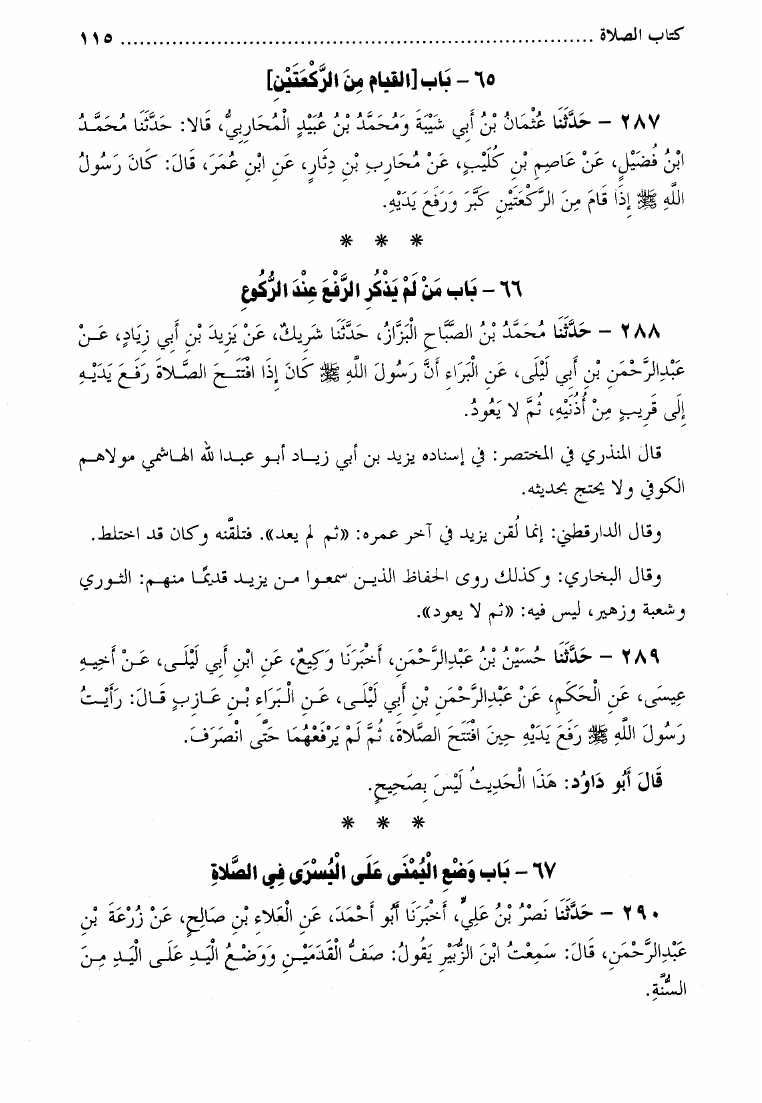 كتاب الصلاة ........................................................................ ١١٥
٦٥ – بَاب [القيام مِنَ الرَّكْعَتَيْنِ]
٢٨٧ – حَدَّثَنَا عُثْمَانُ بْنُ أَبِي شَيْبَةَ وَمُحَمَّدُ بْنُ عُبَيْدٍ الْمُحَارِبِيُّ، قَالا: حَدَّثَنَا مُحَمَّدُ
ابْنُ فُضَيْلٍ، عَنْ عَاصِمِ بْنِ كُلَيْبٍ، عَنْ مُحَارِبِ بْنِ دِثَارٍ، عَنِ ابْنِ عُمَرَ، قَالَ: كَانَ رَسُولُ
اللَّهِ ﷺ إِذَا قَامَ مِنَ الرَّكْعَتَيْنِ كَبَّرَ وَرَفَعَ يَدَيْهِ.
* * *
٦٦ – بَاب مَنْ لَمْ يَذْكُرِ الرَّفْعَ عِنْدَ الرُّكُوعِ
٢٨٨ – حَدَّثَنَا مُحَمَّدُ بْنُ الصَّبَّاحِ الْبَزَّازُ، حَدَّثَنَا شَرِيكٌ، عَنْ يَزِيدَ بْنِ أَبِي زِيَادٍ، عَنْ
عَبْدِالرَّحْمَنِ بْنِ أَبِي لَيْلَى، عَنِ الْبَرَاءِ أَنَّ رَسُولَ اللَّهِ ﷺ كَانَ إِذَا افْتَتَحَ الصَّلاةَ رَفَعَ يَدَيْهِ
إِلَى قَرِيبٍ مِنْ أُذُنَيْهِ، ثُمَّ لا يَعُودُ.
قال المنذري في المختصر: في إسناده يزيد بن أبي زياد أبو عبدا لله الهاشمي مولاهم
الكوفي ولا يحتج بحديثه.
وقال الدارقطني: إنما لُقن يزيد في آخر عمره: «ثم لم يعد». فتلقَّنه وكان قد اختلط.
وقال البخاري: وكذلك روى الحفاظ الذين سمعوا من يزيد قديمًا منهم: الثوري
وشعبة وزهير، ليس فيه: «ثم لا يعود».
٢٨٩ – حَدَّثَنَا حُسَيْنُ بْنُ عَبْدِالرَّحْمَنِ، أَخْبَرَنَا وَكِيعٌ، عَنِ ابْنِ أَبِي لَيْلَى، عَنْ أَخِيهِ
عِيسَى، عَنِ الْحَكَمِ، عَنْ عَبْدِالرَّحْمَنِ بْنِ أَبِي لَيْلَى، عَنِ الْبَرَاءِ بْنِ عَازِبٍ قَالَ: رَأَيْتُ
رَسُولَ اللَّهِ ﷺ رَفَعَ يَدَيْهِ حِينَ افْتَتَحَ الصَّلاةَ، ثُمَّ لَمْ يَرْفَعْهُمَا حَتَّى انْصَرَفَ.
قَالَ أَبُو دَاوُد: هَذَا الْحَدِيثُ لَيْسَ بِصَحِيحٍ.
* * *
٦٧ – بَاب وَضْعِ الْيُمْنَى عَلَى الْيُسْرَى فِي الصَّلاةِ
٢٩٠ – حَدَّثَنَا نَصْرُ بْنُ عَلِيٍّ، أَخْبَرَنَا أَبُو أَحْمَدَ، عَنِ الْعَلاءِ بْنِ صَالِحٍ، عَنْ زُرْعَةَ بْنِ
عَبْدِالرَّحْمَنِ، قَالَ: سَمِعْتُ ابْنَ الزُّبَيْرِ يَقُولُ: صَفُّ الْقَدَمَيْنِ وَوَضْعُ الْيَدِ عَلَى الْيَدِ مِنَ
السُّنَّةِ.